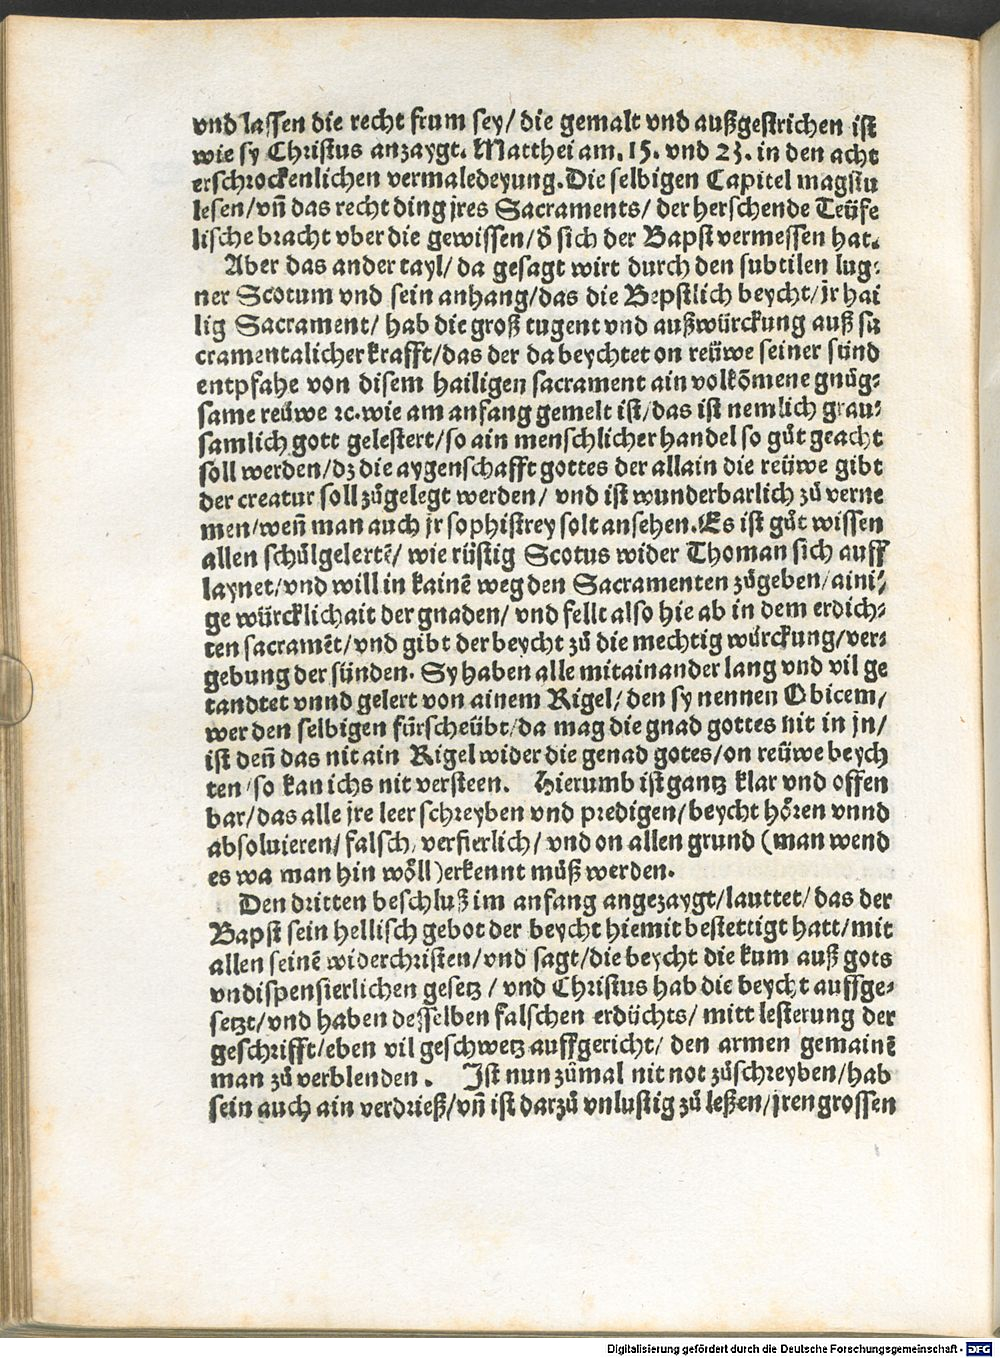 vnd lassen die recht frum sey/ die gemalt vnd außgestrichen ist
wie sy Christus anzaygt. Matthei am. 15. vnd 23. in den acht
erschrockenlichen vermaledeyung. Die selbigen Capitel magstu
lesen/ vn̄ das recht ding jres Sacraments/ der herschende Teüfe
lische bracht vber die gewissen/ d̕ sich der Bapst vermessen hat.
Aber das ander tayl/ da gesagt wirt durch den subtilen lug⸗
ner Scotum vnd sein anhang/ das die Bepstlich beycht/ jr hai
lig Sacrament/ hab die groß tugent vnd außwürckung auß sa
cramentalicher krafft/ das der da beychtet on reüwe seiner sünd
entpfahe von disem hailigen sacrament ain volkōmene gnůg⸗
same reüwe ꝛc. wie am anfang gemelt ist/ das ist nemlich grau⸗
samlich gott gelestert/ so ain menschlicher handel so gůt geacht
soll werden/ dz die aygenschafft gottes der allain die reüwe gibt
der creatur soll zůgelegt werden/ vnd ist wunderbarlich zů verne
men/ wen̄ man auch jr sophistrey solt ansehen. Es ist gůt wissen
allen schůlgelertē/ wie rüstig Scotus wider Thoman sich auff
laynet/ vnd will in kainē weg den Sacramenten zůgeben/ aini⸗
ge würcklichait der gnaden/ vnd fellt also hie ab in dem erdich⸗
ten sacramēt/ vnd gibt der beycht zů die mechtig würckung/ ver⸗
gebung der sünden. Sy haben alle mitainander lang vnd vil ge
tandtet vnnd gelert von ainem Rigel/ den sy nennen Obicem/
wer den selbigen fürscheübt/ da mag die gnad gottes nit in jn/
ist den̄ das nit ain Rigel wider die genad gotes/ on reüwe beych
ten/ so kan ichs nit versteen. Hierumb ist gantz klar vnd offen
bar/ das alle jre leer schreyben vnd predigen/ beycht hören vnnd
absoluieren/ falsch/ verfierlich/ vnd on allen grund (man wend
es wa man hin wöll) erkennt můß werden.
Den dritten beschluß im anfang angezaygt/ lauttet/ das der
Bapst sein hellisch gebot der beycht hiemit bestettigt hatt/ mit
allen seinē widerchristen/ vnd sagt/ die beycht die kum auß gots
vndispensierlichen gesetz/ vnd Christus hab die beycht auffge⸗
setzt/ vnd haben desselben falschen erdüchts/ mitt lesterung der
geschrifft/ eben vil geschwetz auffgericht/ den armen gemainē
man zů verblenden. Ist nun zůmal nit not zůschreyben/ hab
sein auch ain verdrieß/ vn̄ ist darzů vnlustig zů leßen/ jren grossen
Digitalisierung gefördert durch die Deutsche Forschungsgemeinschaft - DFG